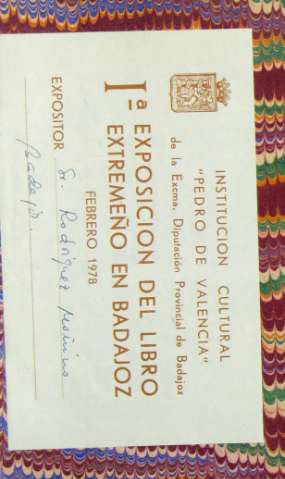 INSTITUCION CULTURAL
"PEDRO DE VALENCIA"
de la Excma. Diputación Provincial de Badajoz
Iª EXPOSICION DEL LIBRO
EXTREMEÑO EN BADAJOZ
FEBRERO 1978
EXPOSITOR Sr. Rodríguez Moñino
Badajoz.